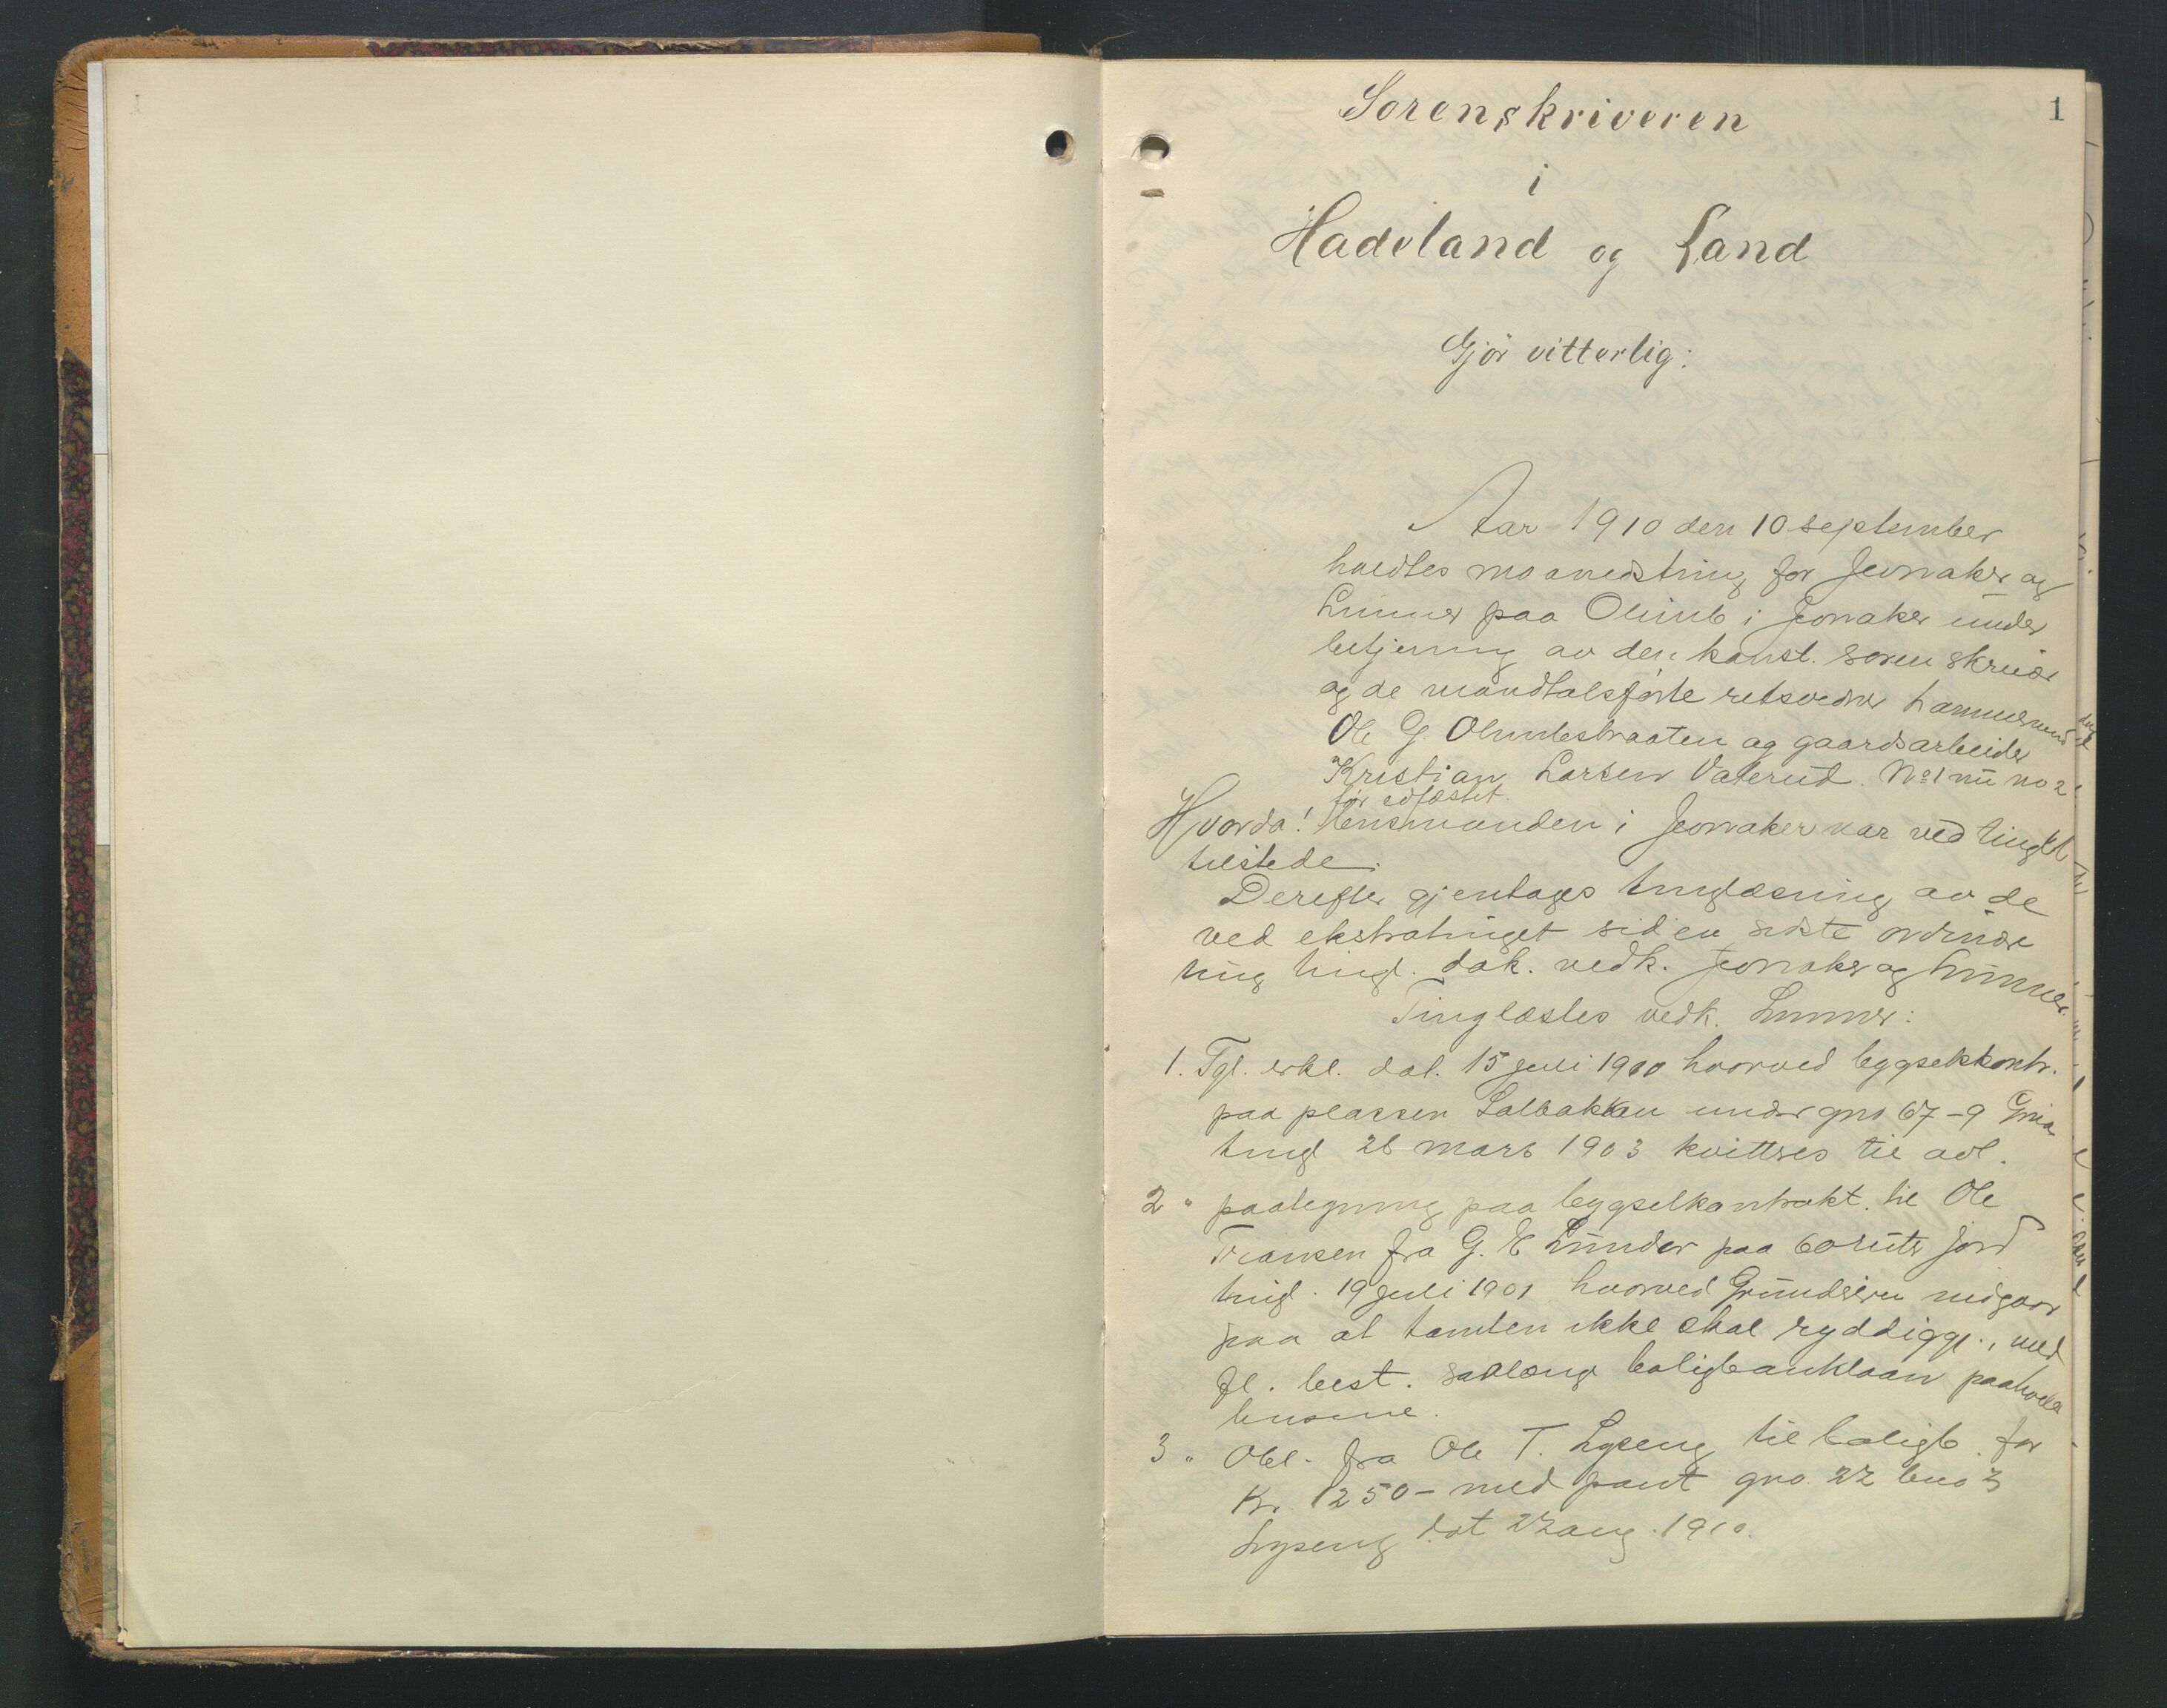 1
Sorenskriveren
i
Hadeland og Land
Gjør vitterlig:
Aar 1910 den 10 september
holdtes maanedsting for Jevnaker og
Lunner paa Olimb i Jevnaker under
betjening av den konst. sorenskriver
og de mandtalsførte retsvidner tømmermand
Ole G. Olimbstraaten og gaardsarbeider
Kristian Larsen Vaterud. No 1 nu no 2
før edfæstet.
Hvorda! Lensmanden i Jevnaker var ved tinget
tilstede.
Derefter gjentages tinglæsning av de
ved ekstratinget siden sidste ordinære
ting tingl. dok. vedk. Jevnaker og Lunner.
Tinglæstes vedk. Lunner:
1. Tgl. erkl. dat. 15 juli 1910 hvorved bygselkontr.
paa plassen Dalbakken under gno 67-9
tingl 26 mars 1903 kvitteres til avl.
2 " paategning paa bygselkontrakt til Ole
Fransen fra G. E Lunder paa 60 ruter jord
tingl. 19 juli 1901 hvorved Grundeieren indgaar
paa at tomten ikke skal ryddiggj., med
fl. best. saalænge boligbanklaan paahviler
husene.
3 " Obl. fra Ole T. Lyseng til boligb. for
Kr. 1250- med pant gno 22 bno 3
Lyseng dat 22 aug. 1910.